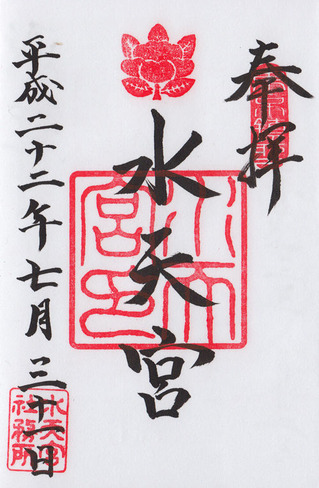 奉拝
水天宮
平成二十二年七月三十一日
水天宮印
水天宮
社務所